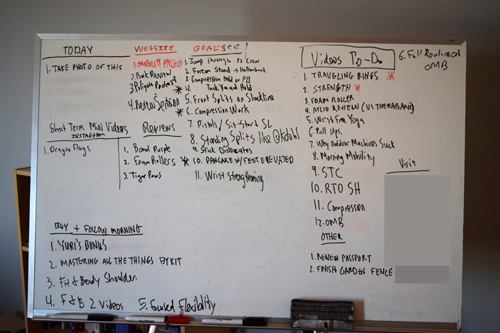 TODAY
1. TAKE PHOTO OF THIS
WEBSITE
2. Book Review
3. Polygon Podcast
4. Review Session
GOALS
1. Jump through to Crow
2. Forearm Stand → Hollowback
3. Compression hold on PB
4. Tuck Yard Hold
5. Front Splits on Slackline
6. Compression Work
7. Pistols / Sit Start SL
8. Standing Splits like @Kdahl
9. Stick Dislocates
10. PANCAKE w/ FEET ELEVATED
11. Wrist Strengthening
Short Term Mini Videos
INSTAGRAM
1. Dragon Flags
Reviews
1. Bend Purple
2. Foam Rollers
3. Tiger Paws
BUY + FOLLOW MORNING
1. YURI'S BANDS
2. MASTERING ALL THE THINGS BY KIT
3. FH & Bendy Shoulder
4. F & B 2 Videos
5. Focused Flexibility
Videos To-Do
1. TRAVELING RINGS
2. STRENGTH
3. FOAM ROLLER
5. Wrist Fix Yoga
6. Pull Ups
7. Why Outdoor Machines Suck
8. Morning Mobility
9. STC
10. RTO SH
11. Compression
12. OMB
OTHER
1. RENEW PASSPORT
2. FINISH GARDEN FENCE
6. Full Routine of
OMB
Visit